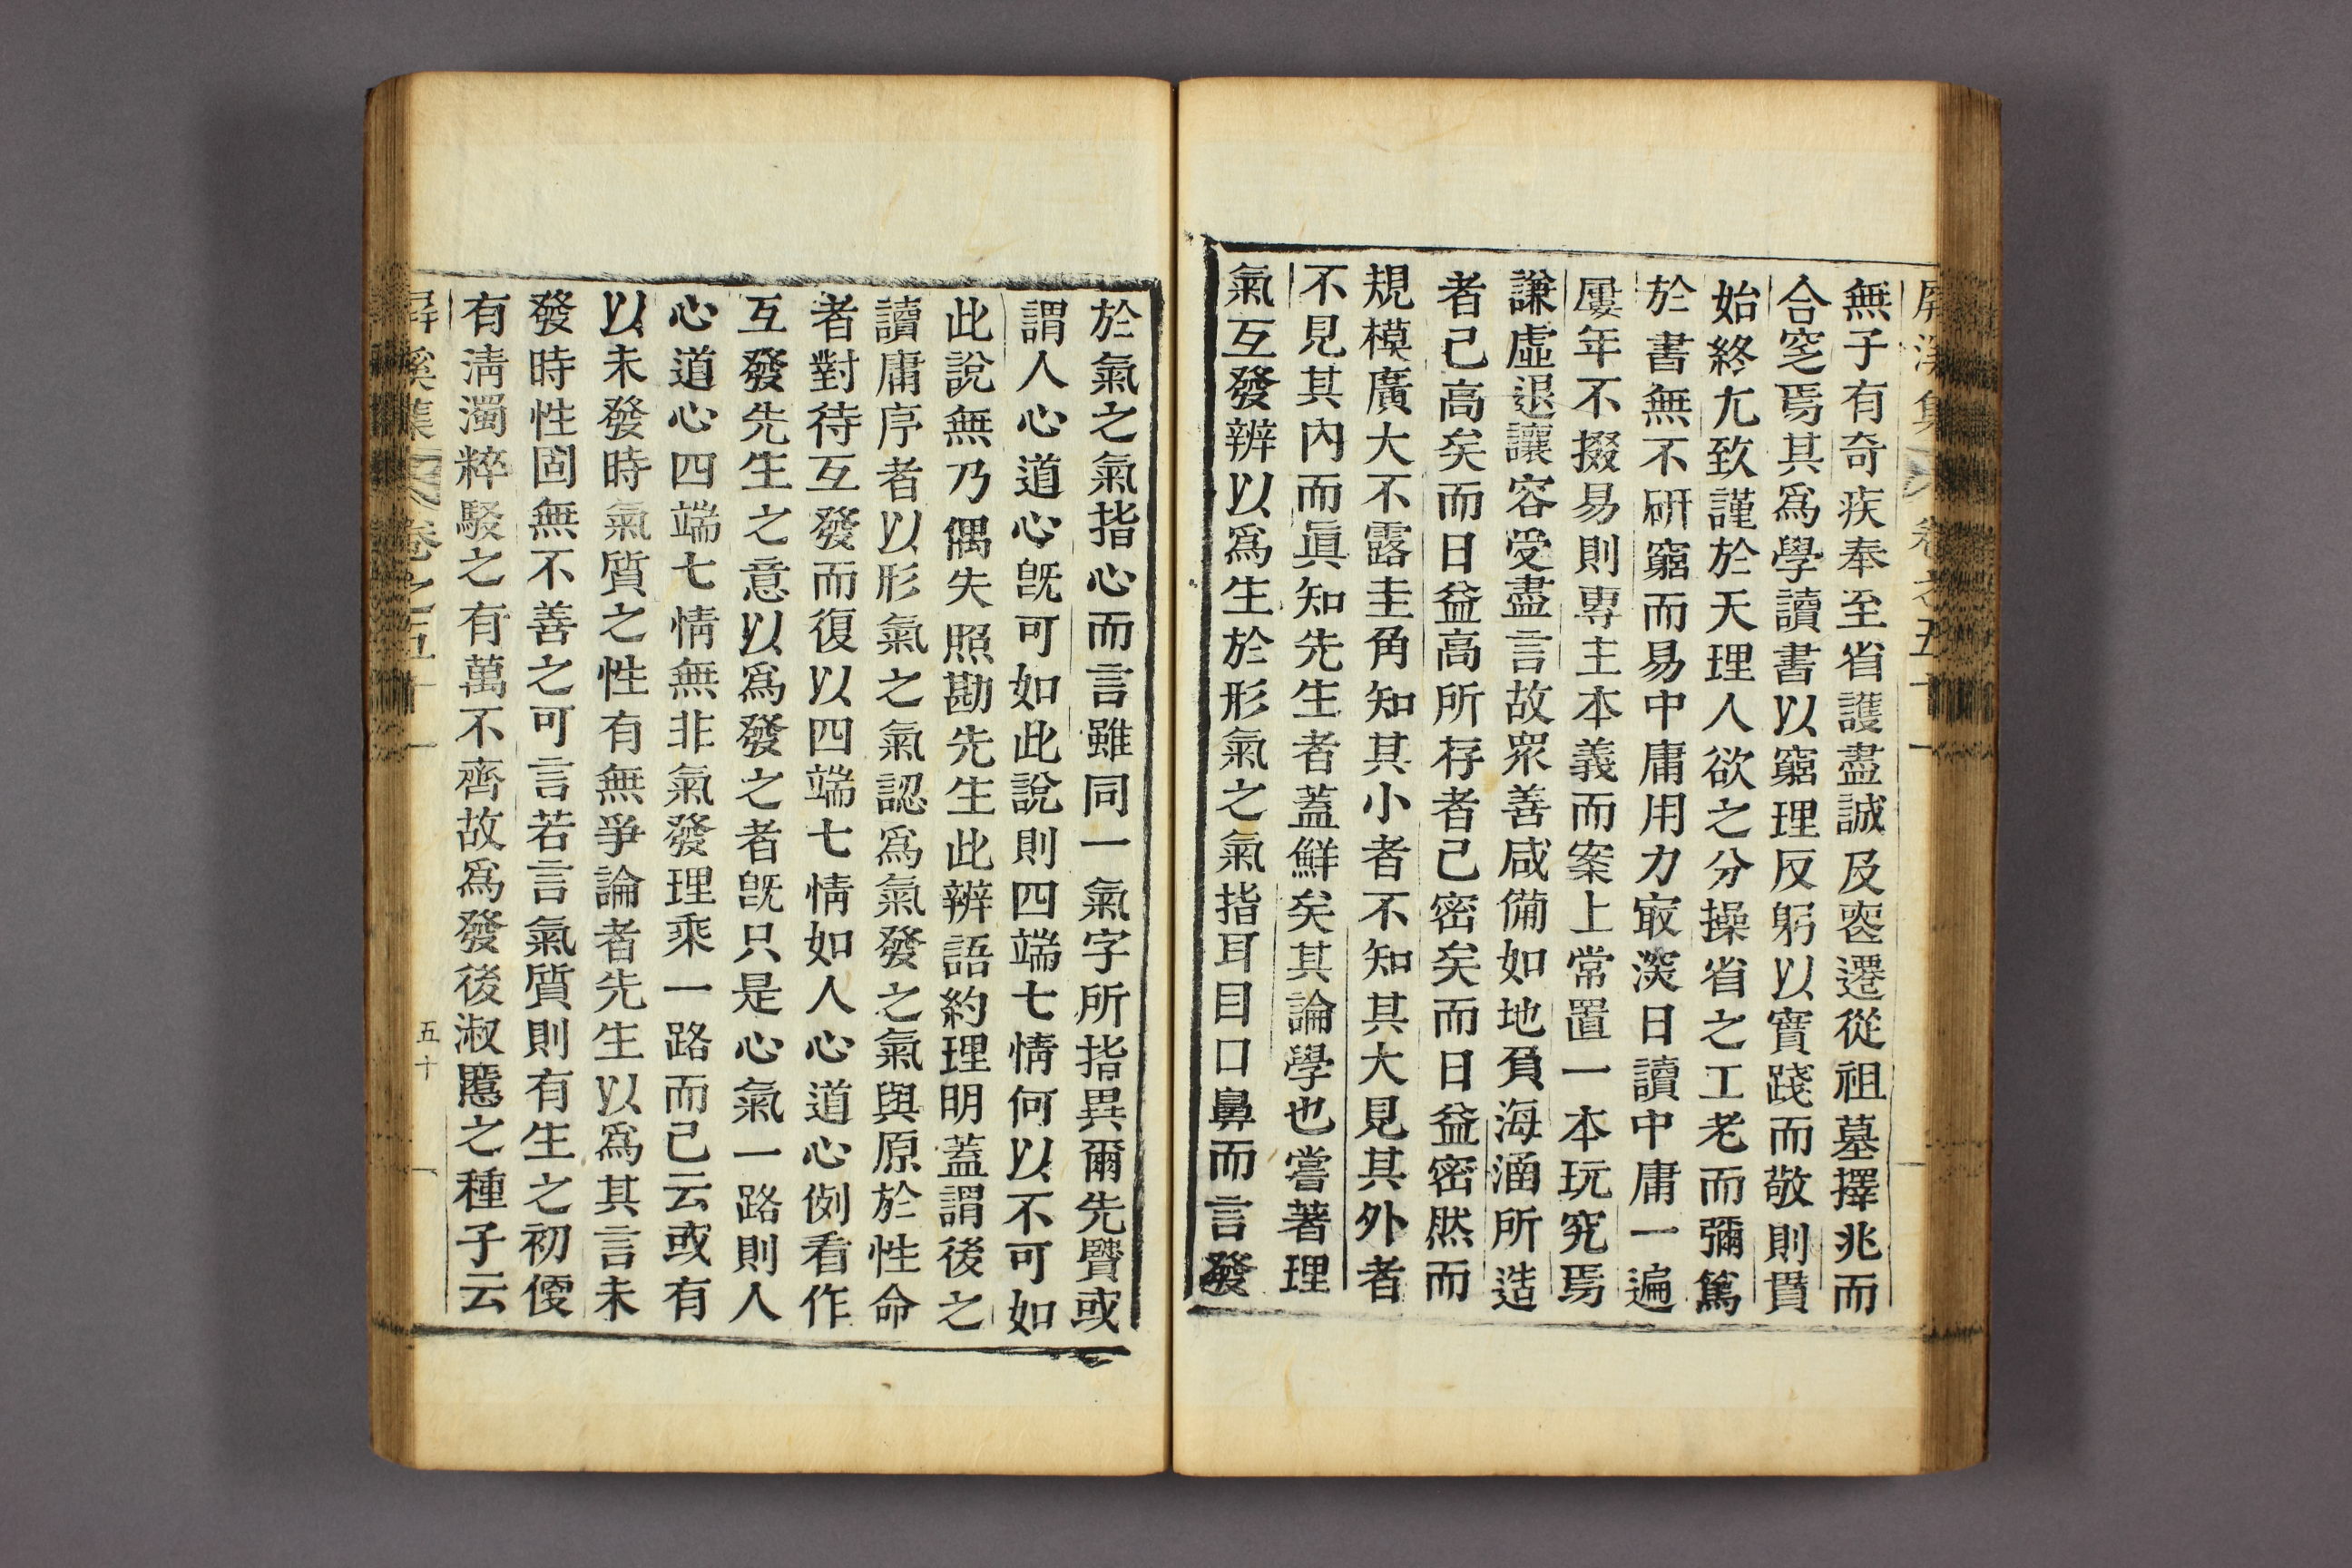 屛溪集 卷之五十一
無子有奇疾奉至省護盡誠及窆遷從祖墓擇兆而
合窆焉其爲學讀書以窮理反躬以實踐而敬則貫
始終尢致謹於天理人欲之分操省之工老而彌篤
於書無不硏窮而易中庸用力㝡深日讀中庸一遍
屢年不掇易則專主本義而案上常置一本玩究焉
謙虛退讓容受盡言故衆善咸備如地負海涵所造
者已高矣而日益高所存者已密矣而日益密然而
規模廣大不露圭角知其小者不知其大見其外者
不見其內而眞知先生者蓋鮮矣其論學也嘗著理
氣互發辨以爲生於形氣之氣指耳目口鼻而言發
於氣之氣指心而言雖同一氣字所指異爾先賢或
謂人心道心旣可如此說則四端七情何以不可如
此說無乃偶失照勘先生此辨語約理明蓋謂後之
讀庸序者以形氣之氣認爲氣發之氣與原於性命
者對待互發而復以四端七情如人心道心例看作
互發先生之意以爲發之者旣只是心氣一路則人
心道心四端七情無非氣發理乘一路而已云或有
以未發時氣質之性有無爭論者先生以爲其言未
發時性固無不善之可言若言氣質則有生之初便
有淸濁粹駁之有萬不齊故爲發後淑慝之種子云
屛溪集 卷之五十一
五十一